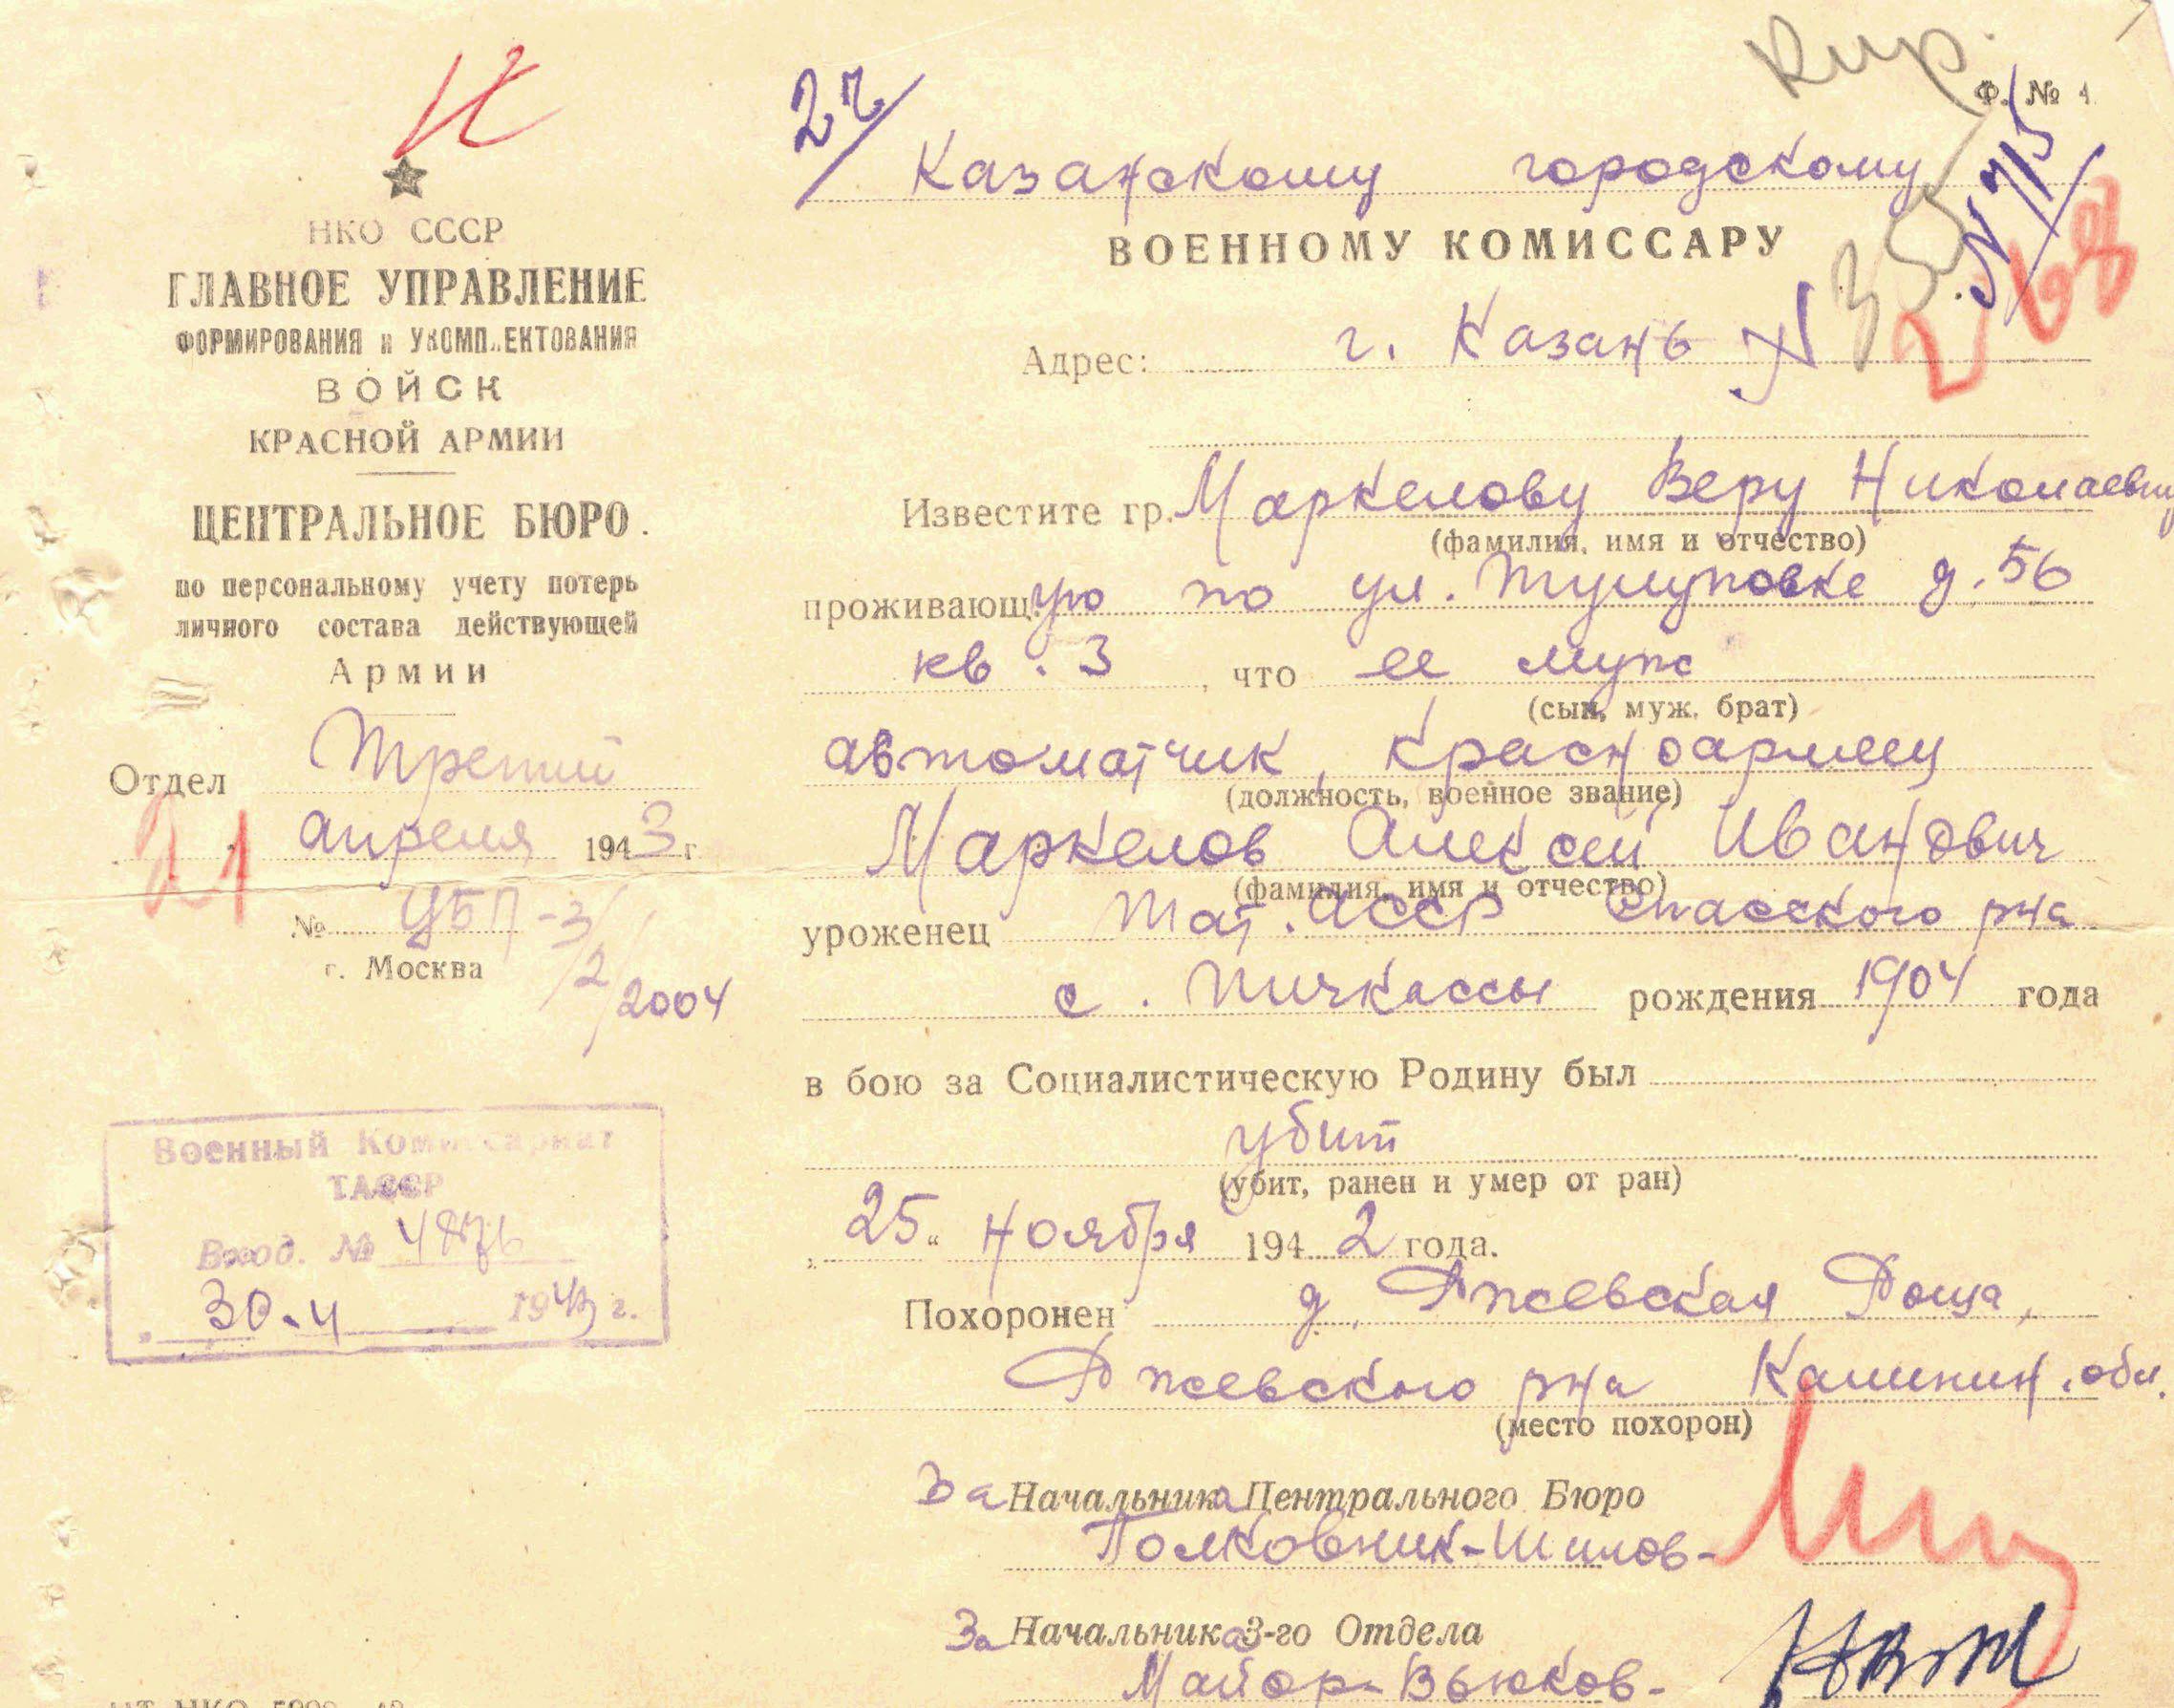 Кир.
Ф. № 1.
27/
№ 715/
Казанскому городскому
ВОЕННОМУ КОМИССАРУ
Адрес: г. Казань
Известите гр. Маркелову Веру Николаевну
(фамилия, имя и отчество)
проживающ. ую по ул. Тулуповке д. 56
кв. 3, что ее муж
(сын, муж, брат)
автоматчик, красноармеец
(должность, военное звание)
Маркелов Алексей Иванович
(фамилия, имя и отчество)
уроженец Тат. АССР Спасского р-на
с. Пичкассы рождения 1904 года
в бою за Социалистическую Родину был
убит
(убит, ранен и умер от ран)
„25“ ноября 1942 года.
Похоронен д. Ржевская Роща,
Ржевского р-на Калинин. обл.
(место похорон)
За Начальника Центрального Бюро
Полковник-Шилов-
За Начальника 3-го Отдела
Майор-Вьюков-
НКО СССР
ГЛАВНОЕ УПРАВЛЕНИЕ
ФОРМИРОВАНИЯ и УКОМПЛЕКТОВАНИЯ
ВОЙСК
КРАСНОЙ АРМИИ
ЦЕНТРАЛЬНОЕ БЮРО.
по персональному учету потерь
личного состава действующей
Армии
Отдел Третий
21 апреля 1943 г.
№ УБП-3/2/2004
г. Москва
Военный Комиссариат
ТАССР
Вход. №
„30-4 1943 г.